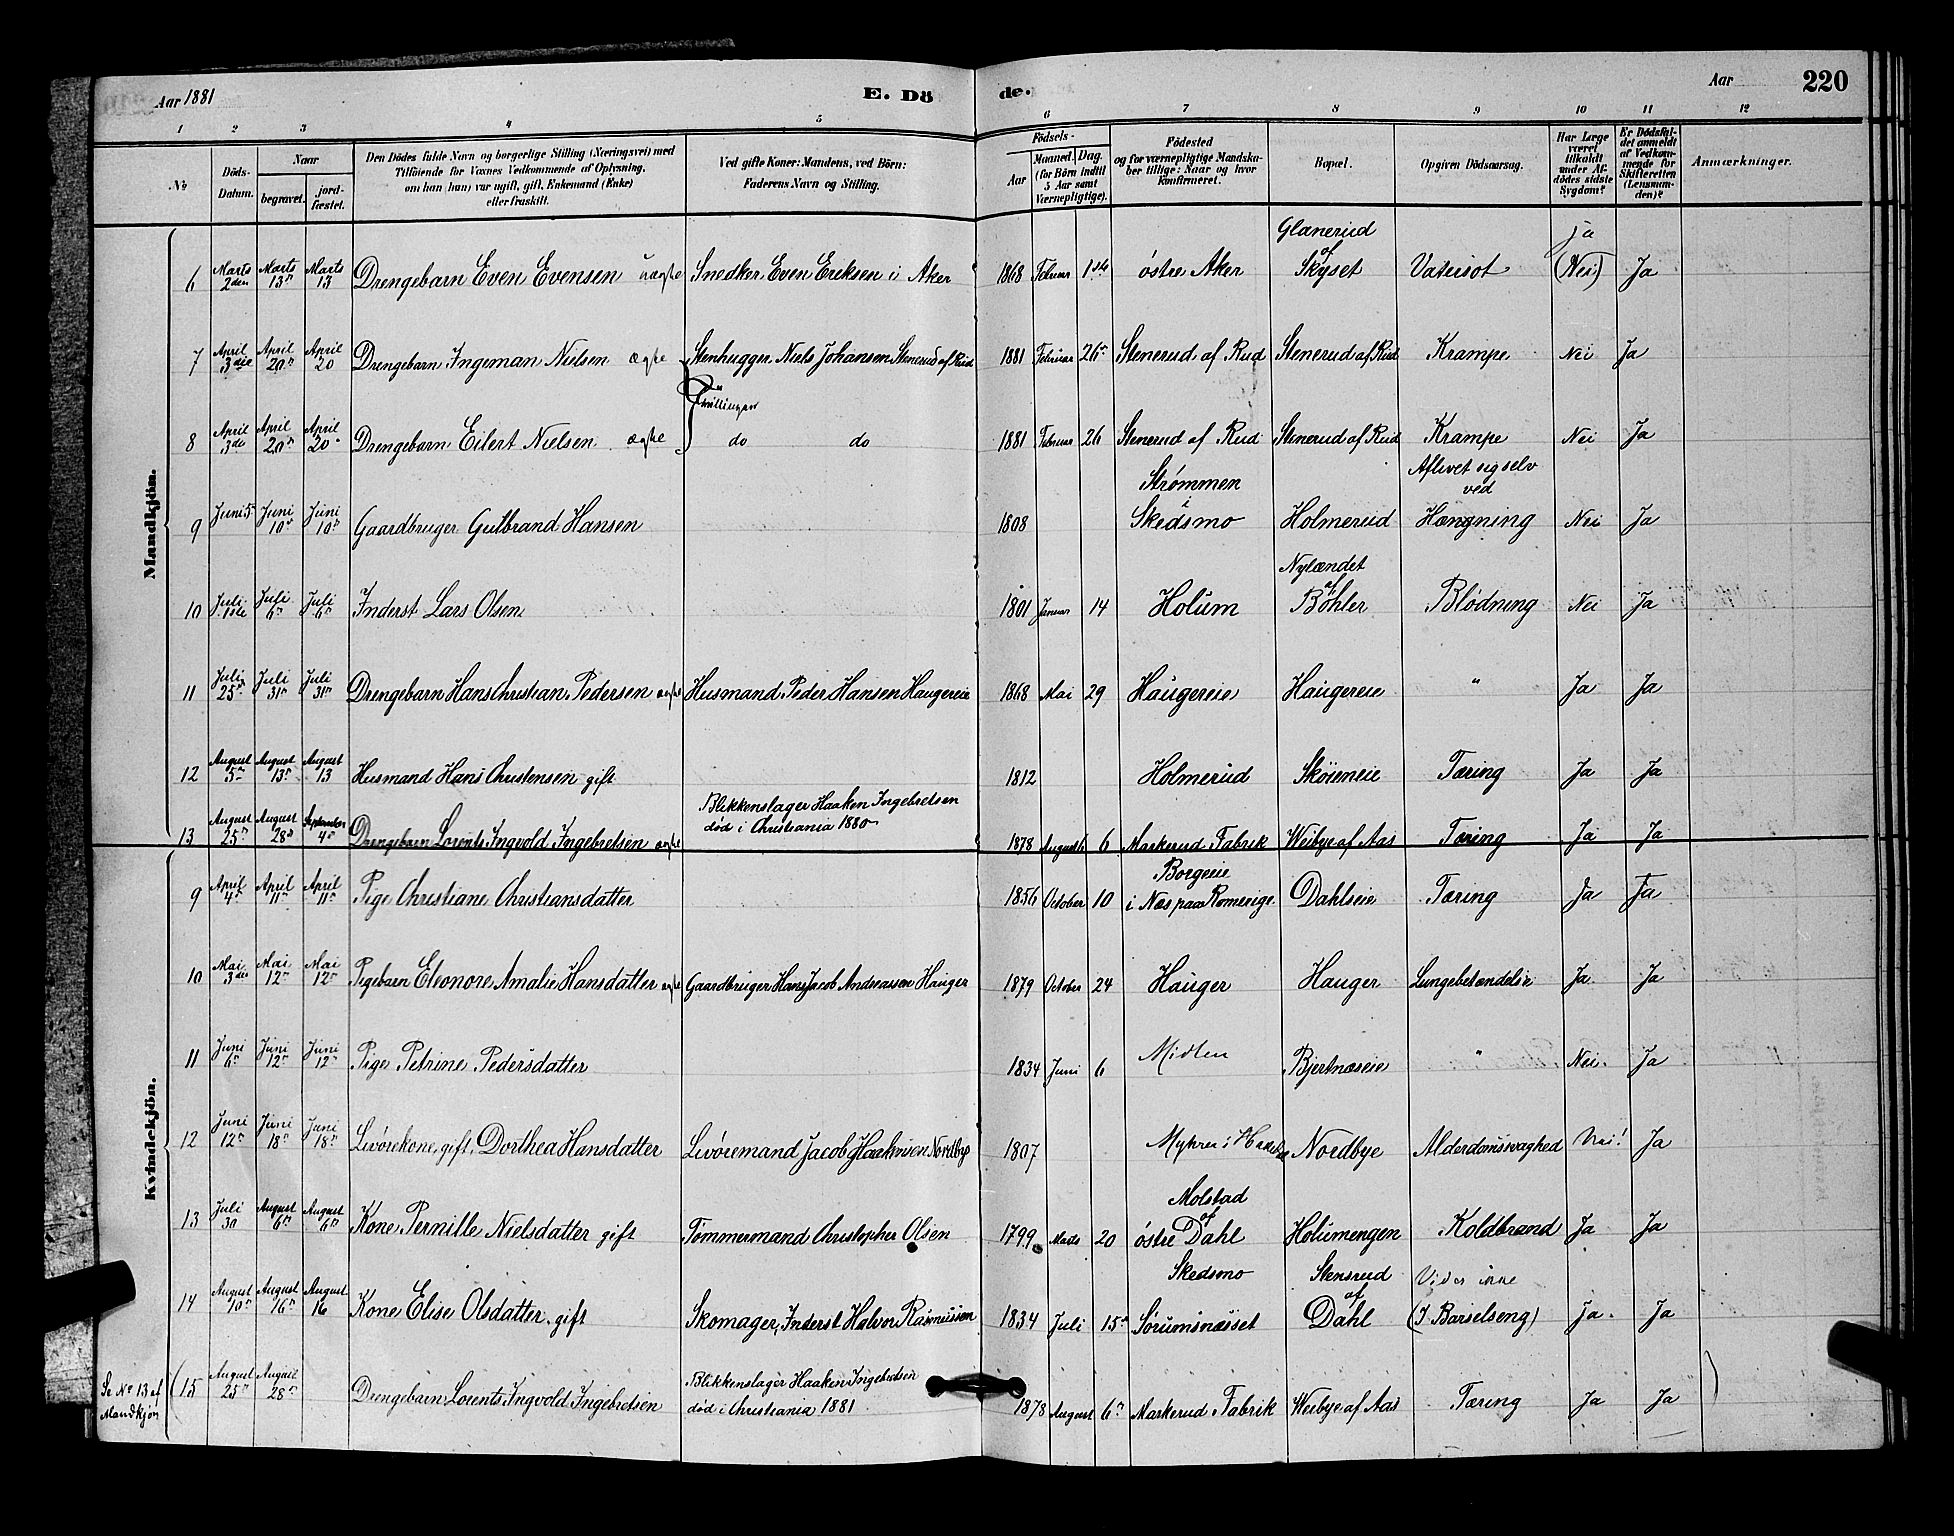 Aar 1881
E. Dö
de.
Aar
220
1 2 3 4 5 6 7 8 9 10 11 12
№
Döds-Datum.
Naar
begravet.
jord-fæstet.
Den Dödes fulde Navn og borgerlige Stilling (Næringsvei) med
Tilföiende for Voxnes Vedkommende af Oplysning,
om han (hun) var ugift, gift, Enkemand (Enke)
eller fraskilt.
Ved gifte Koner: Mandens, ved Börn:
Faderens Navn og Stilling.
Födsels-
Aar
Maaned. Dag.
(for Börn indtil
5 Aar samt
Værnepligtige).
Födested
og for værnepligtige Mandska-
ber tillige: Naar og hvor
Konfirmeret.
Bopæl.
Opgiven Dödsaarsag.
Har Læge
været
tilkaldt
under Af-
dödes sidste
Sygdom?
Er Dödsfal-
det anmeldt
af Vedkom-
mende for
Skifteretten
(Lensman-
den)?
Anmærkninger.
Mandkjön.
6 Marts 2den Marts 13n Marts 13 Drengebarn Even Evensen uægte Snedker Even Eriksen i Aker 1868 Februar 1ste østre Aker Glanerud af Skyset Vatersot ja (Nei) Ja
7 April 3die April 20n April 20 Drengebarn Ingeman Nielsen ægte Stenhugger Niels Johansen Stenerud af Rud 1881 Februar 26n Stenerud af Rud Stenerud af Rud Krampe Nei Ja
Tvillinger
8 April 3die April 20n April 20 Drengebarn Eilert Nielsen ægte do do 1881 Februar 26 Stenerud af Rud Stenerud af Rud Krampe Nei Ja
9 Juni 5n Juni 10n Juni 10n Gaardbruger Gulbrand Hansen 1808 Strømmen i Skedsmo Holmerud Aflivet sig selv ved Hængning Nei Ja
10 Juli 1ste Juli 6n Juli 6n Inderst Lars Olsen 1801 Januar 14 Holum Nylændet af Bøhler Blødning Nei Ja
11 Juli 25n Juli 31n Juli 31n Drengebarn Hans Christian Pedersen ægte Husmand Peder Hansen Haugereie 1868 Mai 29 Haugereie Haugereie " Ja Ja
12 August 5n August 13n August 13 Husmand Hans Christensen gift 1812 Holmerud Skøieneie Tæring Ja Ja
13 August 25n August 28n September 4n Drengebarn Lorents Ingvold Ingebretsen ægte Blikkenslager Haaken Ingebretsen død i Christiania 1880 1878 August 6 Markerud Fabrik Weibye af Aas Tæring Ja Ja
Kvindekjön.
9 April 4n April 11n April 11n Pige Christiane Christiansdatter 1856 October 10 Borgeie i Næs paa Romerige Dahlseie Tæring Ja Ja
10 Mai 3die Mai 12n Mai 12n Pigebarn Eleonore Amalie Hansdatter ægte Gaardbruger Hans Jacob Andreassen Hauger 1879 October 24 Hauger Hauger Lungebetændelse Ja Ja
11 Juni 6n Juni 12n Juni 12n Pige Petrine Pedersdatter 1834 Juni 6 Midten Bjertnæseie " Nei Ja
12 Juni 12n Juni 18n Juni 18n Livørekone, gift, Dorthea Hansdatter Livøremand Jacob Haakensen Nordby 1807 Myhrer i Nordbye Alderdomsvaghed Nei! Ja
13 Juli 30 August 6n August 6n Kone Pernille Nielsdatter gift Tømmermand Christopher Olsen 1799 Marts 20 Molstad af østre Dahl Holumengen Koldbrand Ja Ja
14 August 10n August 16n August 16 Kone Elise Olsdatter gift Skomager, Inderst Halvor Rasmussen 1834 Juli 15n Skedsmo Sørumsnæsset Stensrud af Dahl Vides ikke (I Barselseng) Ja Ja
Se No 13 af Mandkjøn (15 August 25n August 28n Drengebarn Lorents Ingvold Ingebretsen Blikkenslager Haaken Ingebretsen død i Christiania 1881 1878 August 6n Markerud Fabrik Weibye af Aas Tæring Ja Ja )